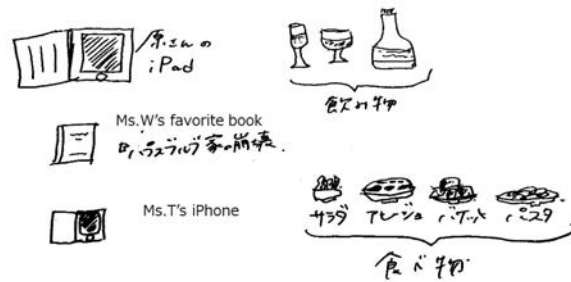 原さんの
iPad
飲み物
Ms.W's favorite book
ハプスブルグ家の崩壊.
Ms.T's iPhone
サラダ
バゲット
パスタ
食べ物